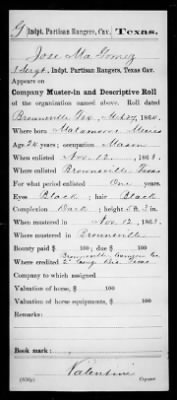 G | Indpt. Partisan Rangers, Cav. | Texas.
Jose Ma Gomez
1 Sergt, Indpt. Partisan Rangers, Texas Cav.
Appears on
Company Muster-in and Descriptive Roll
of the organization named above. Roll dated
Brownsville Tex, 1864.
Where born Matamoros Mexico
Age 24 years; occupation Mason
When enlisted Nov. 12, 1863.
Where enlisted Brownsville, Texas
For what period enlisted One years.
Eyes Black; hair Black
Complexion Dark; height 5 ft. 3 in.
When mustered in Nov. 12, 1863.
Where mustered in Brownsville
Bounty paid $ 100; due $ 100
Where credited Brownsville Cameron Co
Texas
Company to which assigned
Valuation of horse, $ 100
Valuation of horse equipments, $ 100
Remarks:
Book mark:
Valentine
Copyist.